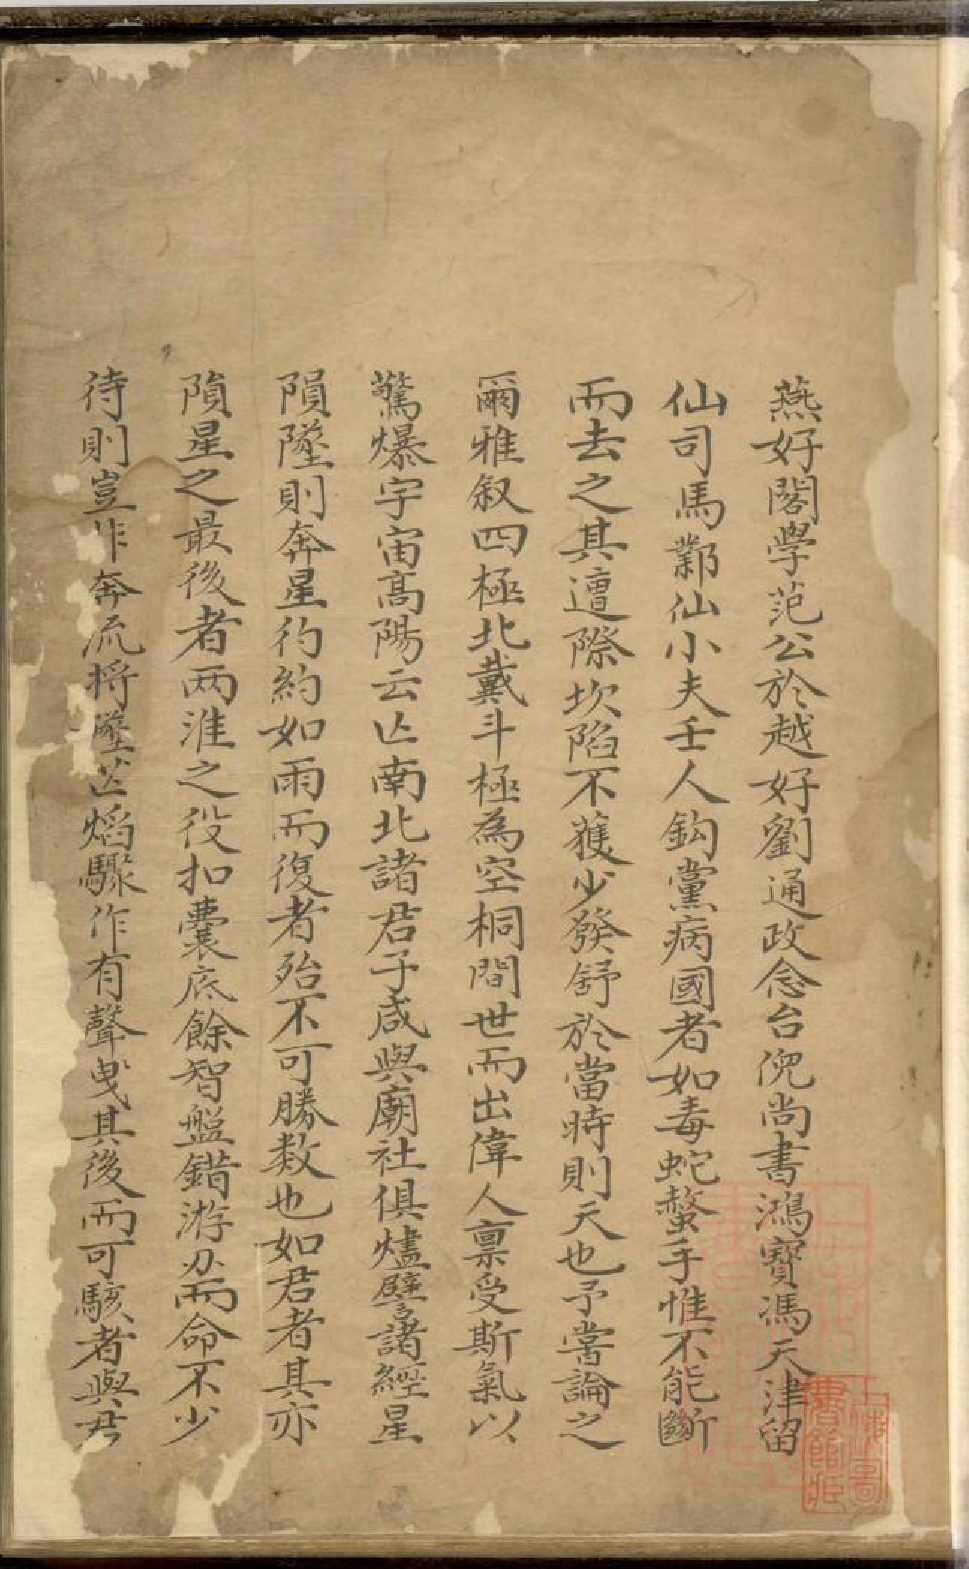 燕好閣學范公於越好劉通政念台倪尚書鴻寶馮天津留
仙司馬鄴仙小夫壬人鈎黨病國者如毒蛇螫手惟不能斷
而去之其遭際坎陷不獲少發舒於當時則天也予嘗論之
爾雅叙四極北戴斗極為空桐間世而出偉人禀受斯氣以
驚爆宇宙高陽云亾南北諸君子咸與廟社俱燼譬諸經星
隕墜則奔星彴約如雨而復者殆不可勝数也如君者其亦
隕星之最後者两淮之役扣囊底餘智盤錯游刃而命不少
待則豈非奔流將墜芒熖驟作有聲曳其後而可駭者與君
上海圖
書館藏